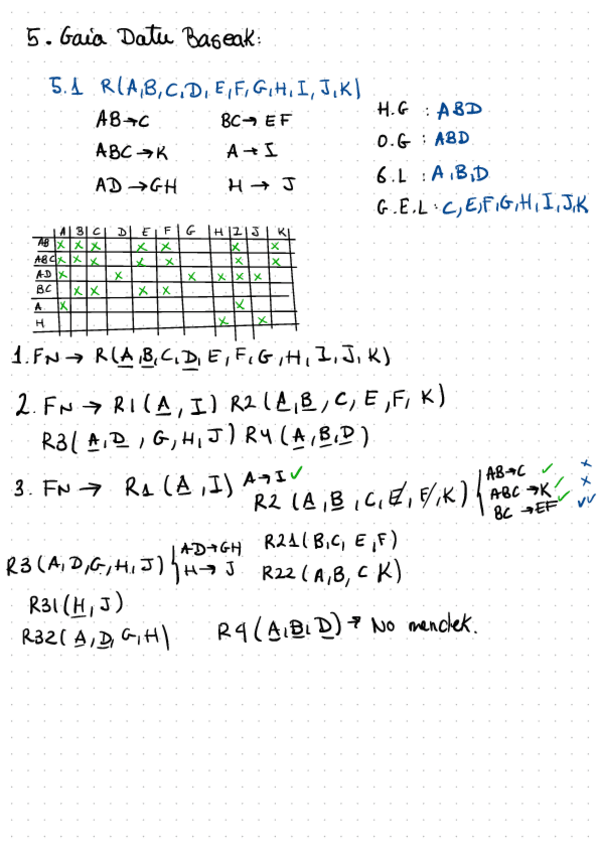 5. Gaia Datu Baseak:
5.1 R(A,B,C,D,E,F,G,H,I,J,K)
AB→C BC→EF
ABC→K A→I
AD→GH H→J
H.G : ABD
O.G : ABD
G.L : A,B,D
G.E.L : C,E,F,G,H,I,J,K
A B C D E F G H I J K
AB x x x x x x x
ABC x x x x x x x
AD x x x x x x
BC x x x x
A x x
H x x
1. FN → R(A,B,C,D,E,F,G,H,I,J,K)
2. FN → R1(A,I) R2(A,B,C,E,F,K)
R3(A,D,G,H,J) R4(A,B,D)
3. FN → R1(A,I) A→I ✓ R2(A,B,C,E,F,K) AB→C ✓ x
ABC→K ✓ x
BC→EF ✓ ✓✓
R3(A,D,G,H,J) AD→GH R21(B,C,E,F)
H→J R22(A,B,C K)
R31(H,J)
R32(A,D,G,H) R4(A,B,D) → No mendek.